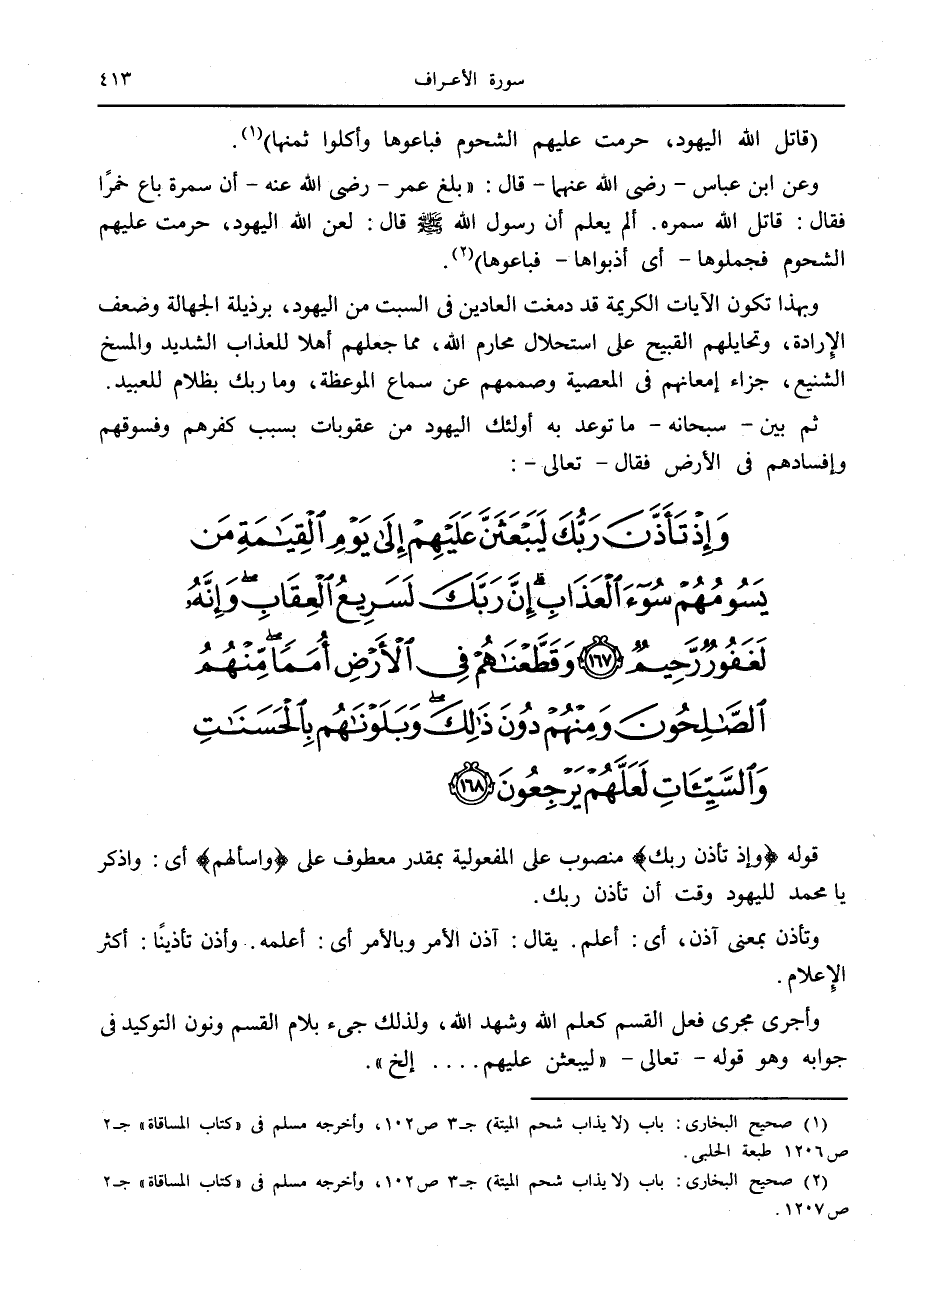 سورة الأعراف ٤١٣
(قاتل الله اليهود، حرمت عليهم الشحوم فباعوها وأكلوا ثمنها)(١).
وعن ابن عباس - رضى الله عنهما - قال : « بلغ عمر - رضى الله عنه - أن سمرة باع خمرًا
فقال : قاتل الله سمره. ألم يعلم أن رسول الله ﷺ قال : لعن الله اليهود، حرمت عليهم
الشحوم فجملوها - أى أذبواها - فباعوها)(٢).
وبهذا تكون الآيات الكريمة قد دمغت العادين فى السبت من اليهود، برذيلة الجهالة وضعف
الإرادة، وتحايلهم القبيح على استحلال محارم الله، مما جعلهم أهلا للعذاب الشديد والمسخ
الشنيع، جزاء إمعانهم فى المعصية وصممهم عن سماع الموعظة، وما ربك بظلام للعبيد.
ثم بين - سبحانه - ما توعد به أولئك اليهود من عقوبات بسبب كفرهم وفسوقهم
وإفسادهم فى الأرض فقال - تعالى - :
وَإِذْ تَأَذَّنَ رَبُّكَ لَيَبْعَثَنَّ عَلَيْهِمْ إِلَىٰ يَوْمِ ٱلْقِيَٰمَةِ مَن
يَسُومُهُمْ سُوٓءَ ٱلْعَذَابِ ۗ إِنَّ رَبَّكَ لَسَرِيعُ ٱلْعِقَابِ ۖ وَإِنَّهُۥ
لَغَفُورٌ رَّحِيمٌ ﴿١٦٧﴾ وَقَطَّعْنَٰهُمْ فِى ٱلْأَرْضِ أُمَمًا ۖ مِّنْهُمُ
ٱلصَّٰلِحُونَ وَمِنْهُمْ دُونَ ذَٰلِكَ ۖ وَبَلَوْنَٰهُم بِٱلْحَسَنَٰتِ
وَٱلسَّيِّـَٔاتِ لَعَلَّهُمْ يَرْجِعُونَ ﴿١٦٨﴾
قوله ﴿وإذ تأذن ربك﴾ منصوب على المفعولية بمقدر معطوف على ﴿واسألهم﴾ أى : واذكر
يا محمد لليهود وقت أن تأذن ربك.
وتأذن بمعنى آذن، أى : أعلم. يقال : آذن الأمر وبالأمر أى : أعلمه. وأذن تأذينًا : أكثر
الإعلام.
وأجرى مجرى فعل القسم كعلم الله وشهد الله، ولذلك جىء بلام القسم ونون التوكيد فى
جوابه وهو قوله - تعالى - « ليبعثن عليهم .... إلخ ».
(١) صحيح البخارى : باب (لا يذاب شحم الميتة) جـ٣ ص١٠٢، وأخرجه مسلم فى « كتاب المساقاة » جـ٢
ص١٢٠٦ طبعة الحلبى.
(٢) صحيح البخارى : باب (لا يذاب شحم الميتة) جـ٣ ص١٠٢، وأخرجه مسلم فى « كتاب المساقاة » جـ٢
ص١٢٠٧.